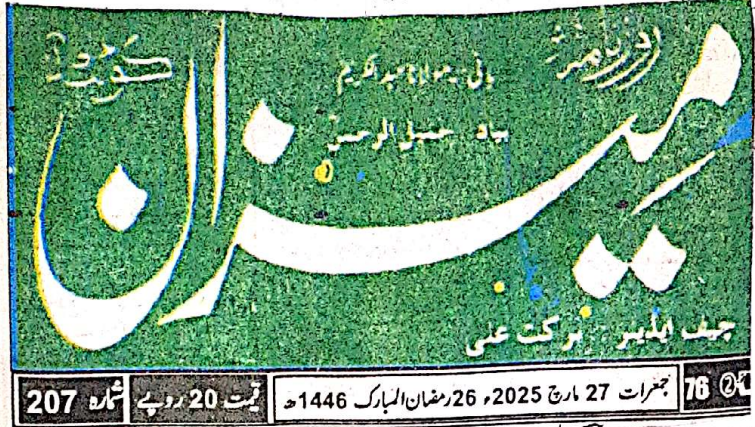 روزنامہ
میزان
کوئٹہ
بانی۔ مولانا عبدالکریم
بیاد جمیل الرحمن
چیف ایڈیٹر برکت علی
76 جمعرات 27 مارچ 2025ء 26 رمضان المبارک 1446ھ قیمت 20 روپے شمارہ 207